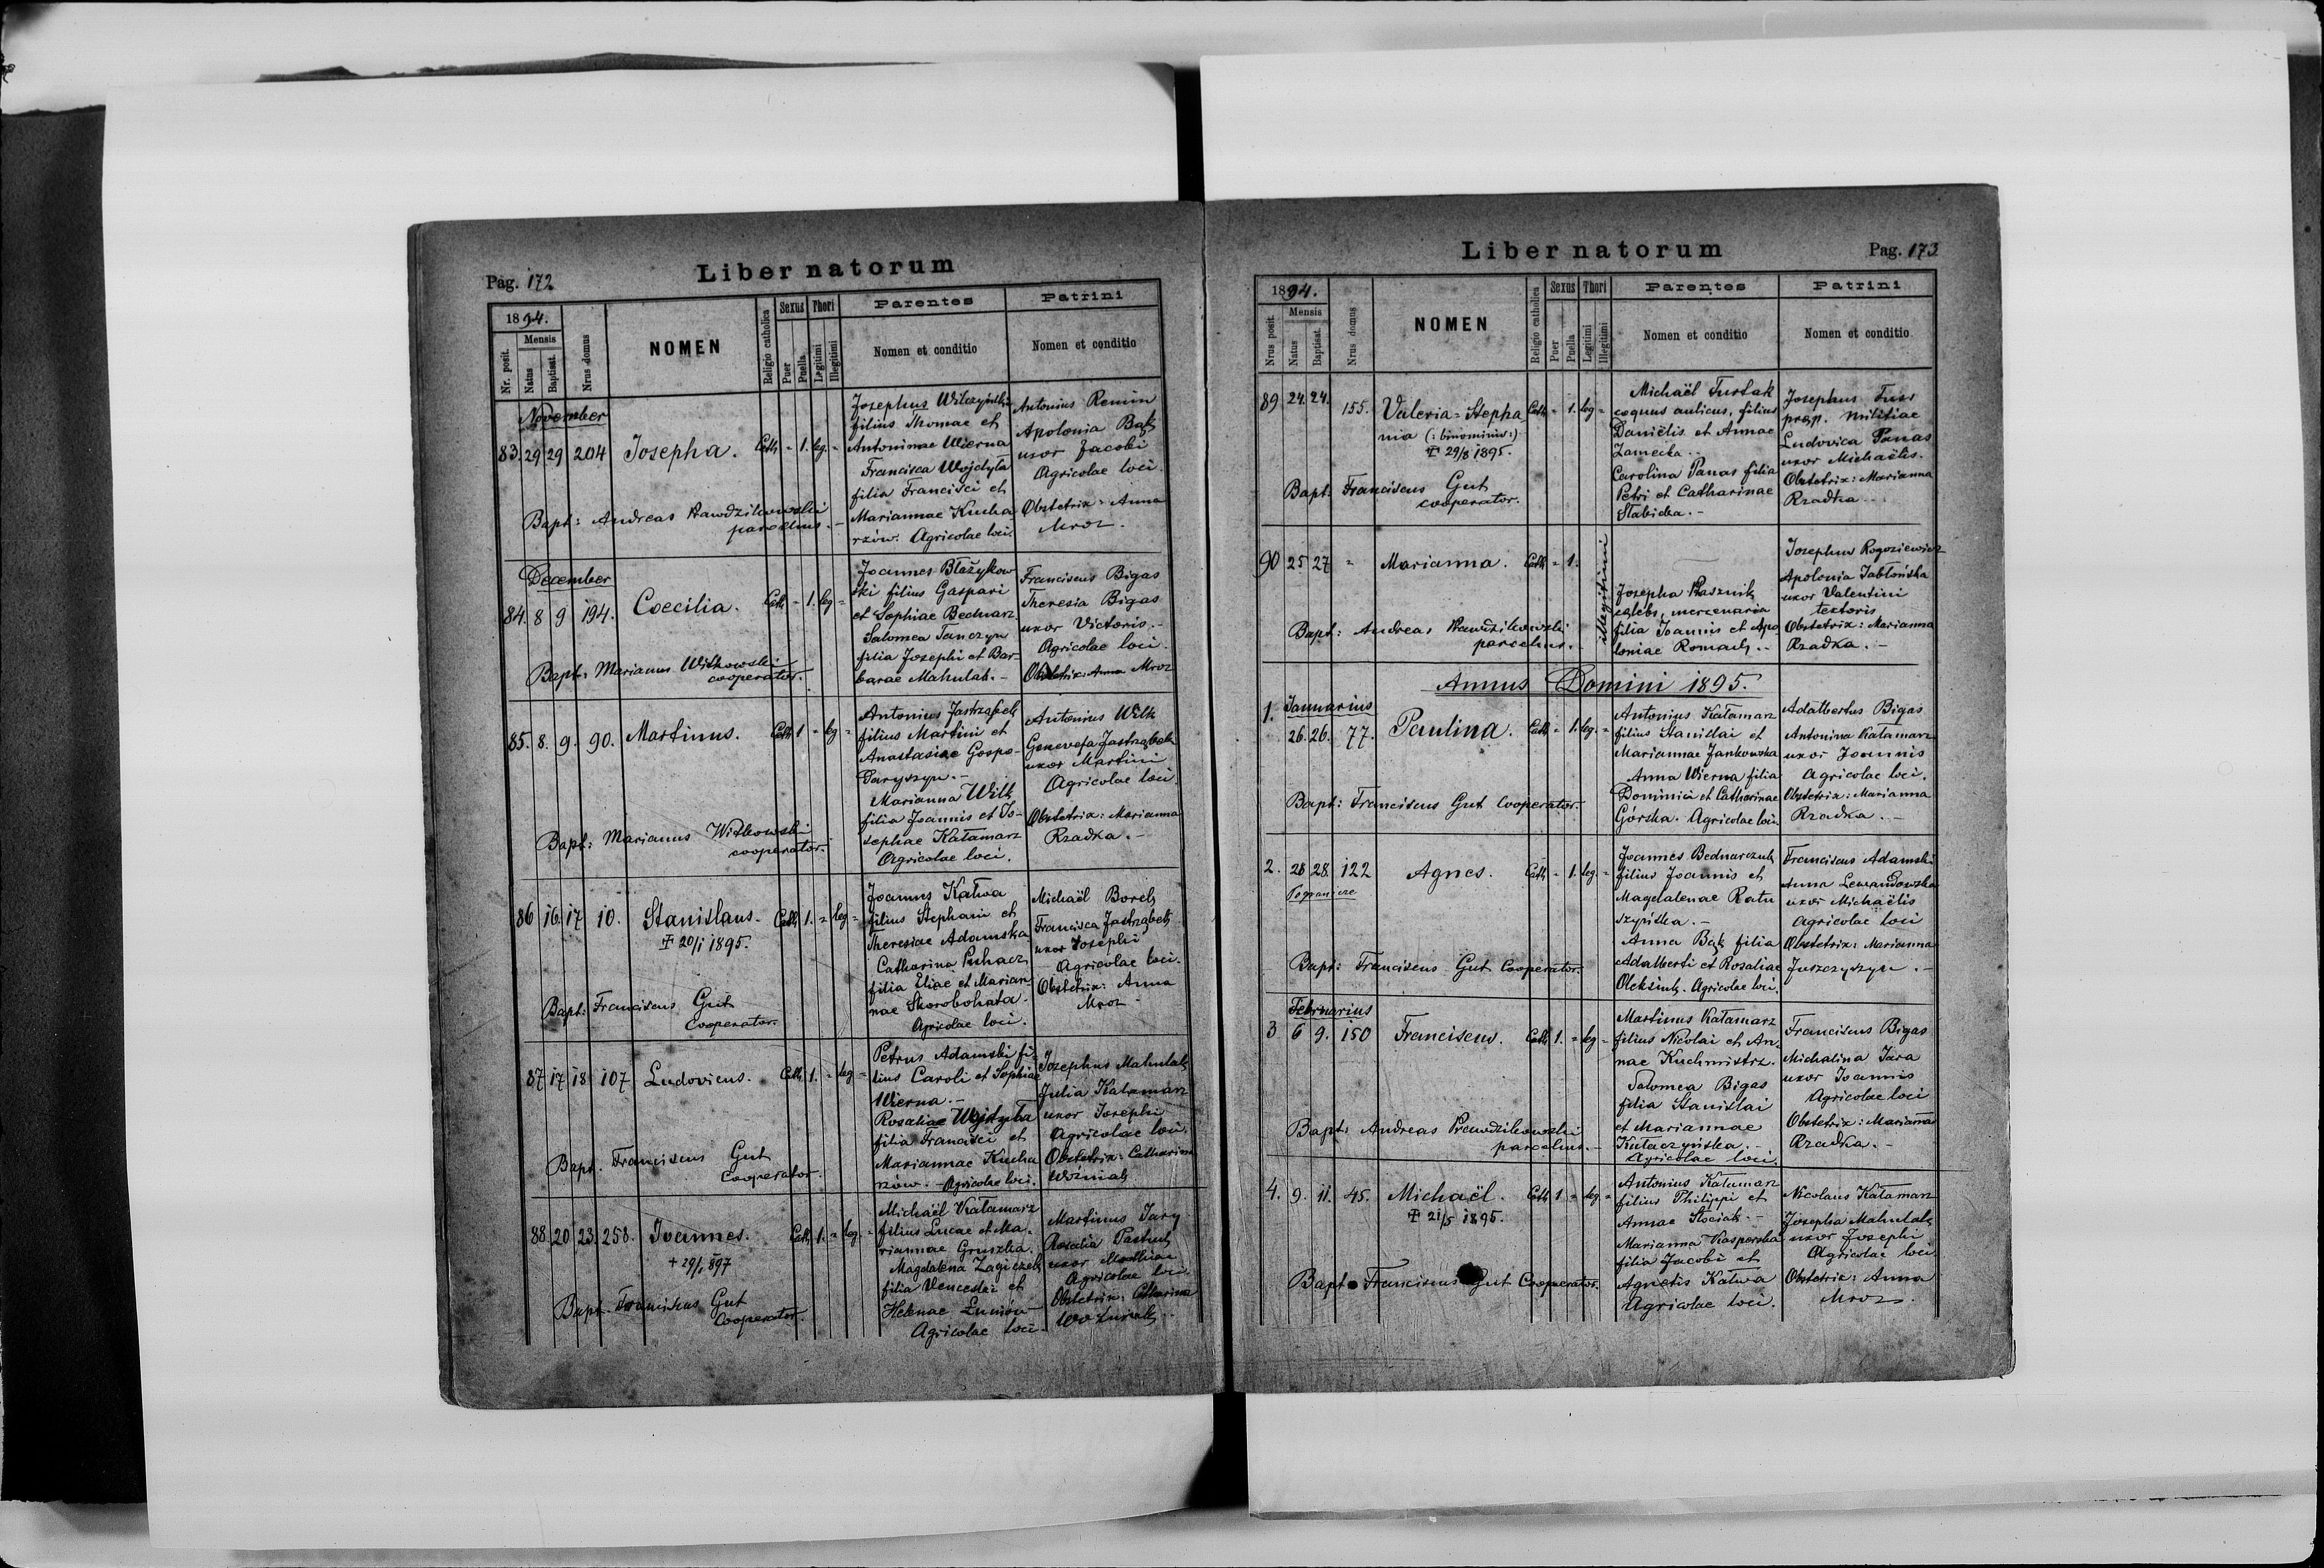 Pag. 172
Liber natorum
1894.
Mensis
Nr. posit.
Natus
Baptisat.
Nrus domus
NOMEN
Religio catholica
Sexus
Puer
Puella
Thori
Legitimi
Illegitimi
Parentes
Nomen et conditio
Patrini
Nomen et conditio
November
83. 29 29 204 Josepha. Cath - 1. leg. -
Josephus Wilczyński
filius Thomae et
Antoninae Wierna
Francisca Wojdyła
filia Francisci et
Mariannae Kucha
rzów. Agricolae loci.
Antonius Remin
Apolonia Bąk
uxor Jacobi
Agricolae loci.
Obstetrix: Anna
Mroz.
Bapt: Andreas Prawdzikowski
parochus.
December
84. 8 9 194. Coecilia. Cath - 1. leg -
Joannes Błażykow
ski filius Gaspari
et Sophiae Bednarz.
Salomea Tanczyn
filia Josephi et Bar-
barae Mahulak. -
Franciscus Bigas
Theresia Bigas
uxor Victoris. -
Agricolae loci.
Obstetrix: Anna Mroz
Bapt: Marianus Witkowski
cooperator.
85. 8. 9. 90. Martinus. Cath 1 - leg -
Antonius Jastrząbek
filius Martini et
Anastasiae Gospo-
Daryszyn. -
Marianna Wilk
filia Joannis et Jo-
sephae Kałamarz
Agricolae loci.
Antonius Wilk
Genovefa Jastrząbek
uxor Martini
Agricolae loci.
Obstetrix: Marianna
Rzadka. -
Bapt: Marianus Witkowski
cooperator.
86 16. 17 10. Stanislaus. Cath 1. - leg -
20/1 1895.
Joannes Kałwa
filius Stephani et
Theresiae Adamska
Catharina Puhacz
filia Eliae et Marian-
nae Skorobohata -
Agricolae loci.
Michaël Borek
Francisca Jastrząbek
uxor Josephi
Agricolae loci.
Obstetrix: Anna
Mroz -
Bapt: Franciscus Gut
Cooperator.
87 17 18 107 Ludovicus. Cath 1. - leg -
Petrus Adamski fi-
lius Caroli et Sophiae
Wierna. -
Rosaliae Wojdyła
filia Francisci et
Mariannae Kucha
rzów. - Agricolae loci.
Josephus Mahulak
Julia Kałamarz
uxor Josephi
Agricolae loci.
Obstetrix: Catharina
Woźniak
Bapt. Franciscus Gut
Cooperator.
88. 20 23. 258. Joannes. Cath 1. - leg. -
+ 29/1 897
Michaël Kałamarz
filius Lucae et Ma-
riannae Gruszka.
Magdalena Zagiczek
filia Venceslai et
Helenae Łuniów
Agricolae loci.
Martinus Jary
Rosalia Pastuch
uxor
Agricolae loci.
Obstetrix: Catharina
Woźniak
Bapt. Franciscus Gut
Cooperator.
Liber natorum
Pag. 173
1894.
Mensis
Nrus posit.
Natus
Baptisat.
Nrus domus
NOMEN
Religio catholica
Sexus
Puer
Puella
Thori
Legitimi
Illegitimi
Parentes
Nomen et conditio
Patrini
Nomen et conditio
89 24. 24. 155. Valeria = Stepha Cath - 1. leg -
nia (: binominis :)
29/8 1895.
Michaël Turtak
coquus aulicus, filius
Daniëlis et Annae
Zamecka. -
Carolina Panas filia
Petri et Catharinae
Słabicka. -
Josephus Fuss
praep. militiae
Ludovica Panas
uxor Michaëlis.
Obstetrix: Marianna
Rzadka -
Bapt. Franciscus Gut
cooperator.
90 25 27 - Marianna. Cath - 1.
illegitimi
Josepha Krasznik
caelebs, mercenaria
filia Joannis et Apo
loniae Romach. -
Josephus Rogoziewicz
Apolonia Jabłońska
uxor Valentini
textoris
Obstetrix: Marianna
Rzadka. -
Bapt: Andreas Prawdzikowski
parochus. -
Annus Domini 1895.
Januarius
1. 26. 26. 77. Paulina. Cath - 1. leg. -
Antonius Kałamarz
filius Stanislai et
Mariannae Jankowska
Anna Wierna filia
Dominici et Catharinae
Górska. Agricolae loci.
Adalbertus Bigas
Antonina Kałamarz
uxor Joannis
Agricolae loci.
Obstetrix: Marianna
Rzadka. -
Bapt: Franciscus Gut Cooperator.
2. 28 28. 122 Agnes. Cath - 1. leg. -
Pogranicze
Joannes Bednarczuk
filius Joannis et
Magdalenae Ratu
szyńska. -
Anna Bąk filia
Adalberti et Rosaliae
Oleksiuk. Agricolae loci.
Franciscus Adamski
Anna Lewandowska
uxor Michaëlis
Agricolae loci
Obstetrix: Marianna
Juszczyszyn. -
Bapt: Franciscus Gut Cooperator.
Februarius
3 6 9. 150 Franciscus. Cath 1. - leg -
Martinus Kałamarz
filius Nicolai et An-
nae Kuchmistrz.
Salomea Bigas
filia Stanislai
et Mariannae
Kułaczyńska. -
Agricolae loci.
Franciscus Bigas
Michalina Jara
uxor Joannis
Agricolae loci
Obstetrix: Marianna
Rzadka. -
Bapt: Andreas Prawdzikowski
parochus. -
4. 9. 11. 45. Michaël. Cath 1 - leg. -
21/5 1895.
Antonius Kałamarz
filius Philippi et
Annae Stociak. -
Marianna Kasperska
filia Jacobi et
Agnetis Kałwa
Agricolae loci.
Nicolaus Kałamarz
Josepha Mahulak
uxor Josephi
Agricolae loci.
Obstetrix: Anna
Mroz.
Bapt. Franciscus Gut Cooperator.